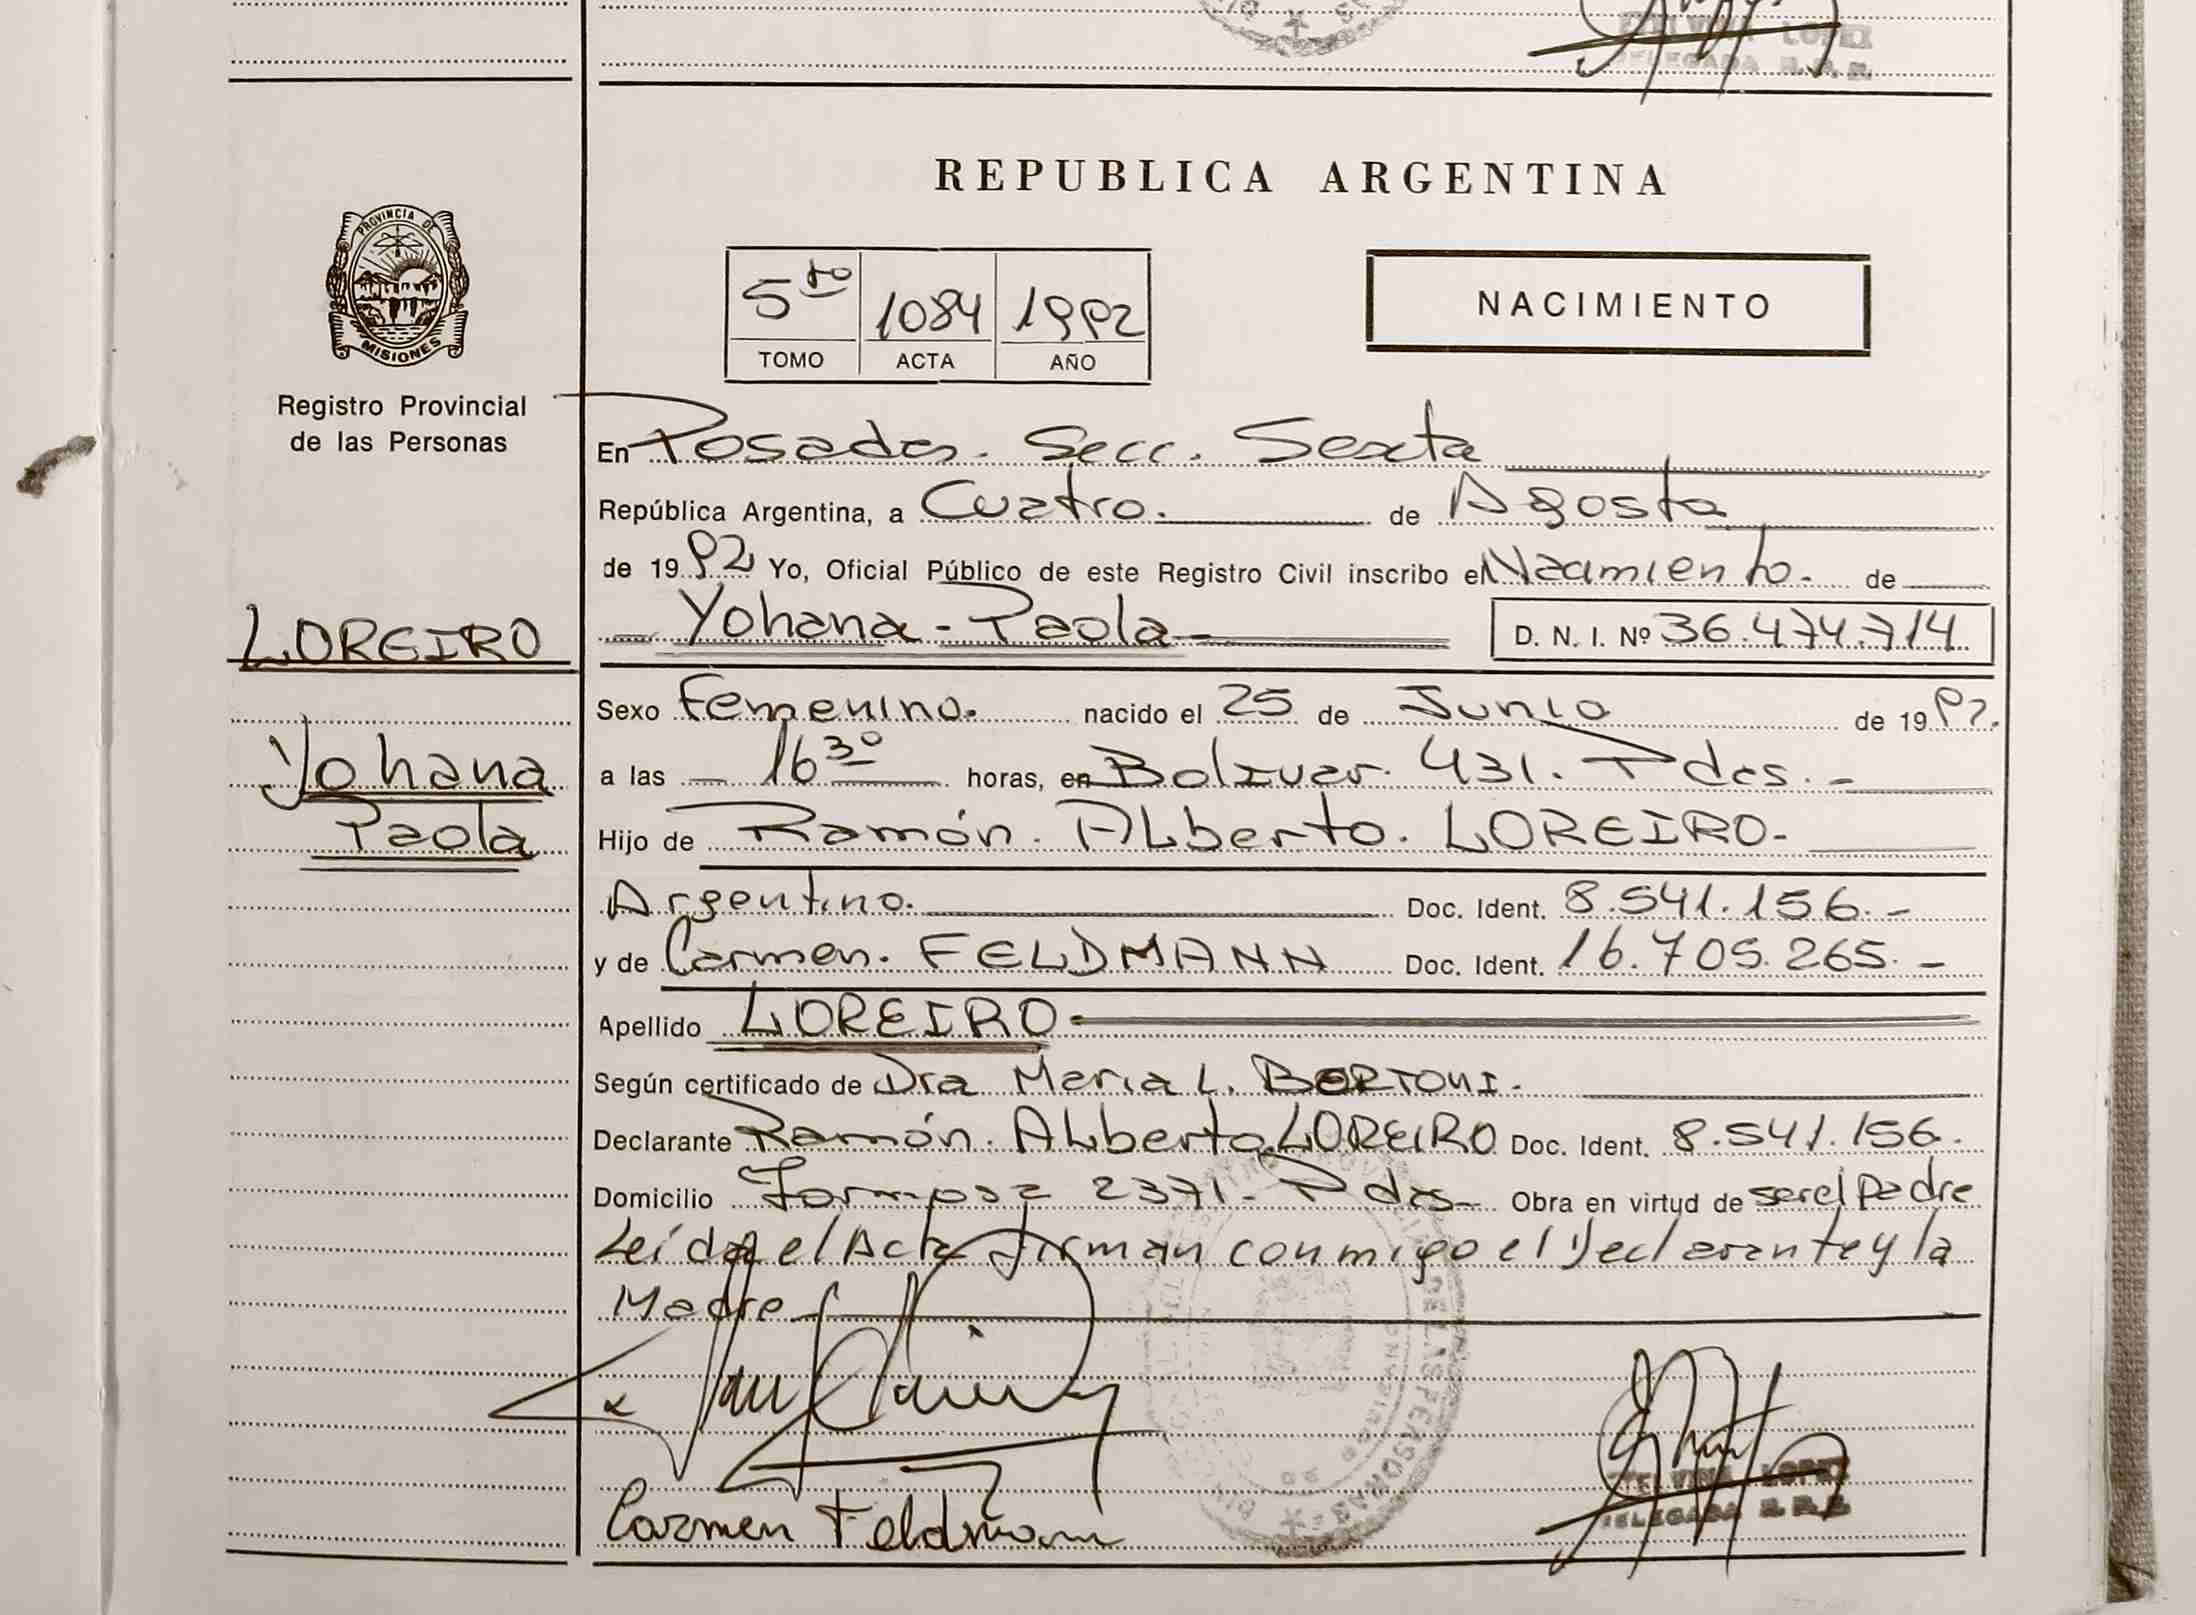 LOPEZ
DELEGADA R.P.P.
REPUBLICA ARGENTINA
PROVINCIA DE
MISIONES
Registro Provincial
de las Personas
5to 1084 1992
TOMO ACTA AÑO
NACIMIENTO
En Posadas. Secc. Sexta
República Argentina, a Cuatro. de Agosto
de 1992 Yo, Oficial Público de este Registro Civil inscribo el Nacimiento. de
Yohana - Paola - D. N. I. Nº 36.474.714
LOREIRO
Yohana
Paola
Sexo Femenino. nacido el 25 de Junio de 1992.
a las 16 30 horas, en Bolivar. 431. Pdas. -
Hijo de Ramón. Alberto. LOREIRO-
Argentino. Doc. Ident. 8.541.156.-
y de Carmen. FELDMANN Doc. Ident. 16.705.265. -
Apellido LOREIRO
Según certificado de Dra Maria L. BORTONI.
Declarante Ramón. Alberto. LOREIRO Doc. Ident. 8.541.156.
Domicilio Formosa 2371- Pdas- Obra en virtud de ser el padre
Leída el Acta firman conmigo el Declarante y la
Madre
DE LAS PERSONAS
Carmen Feldmann
LOPEZ
DELEGADA R.P.P.